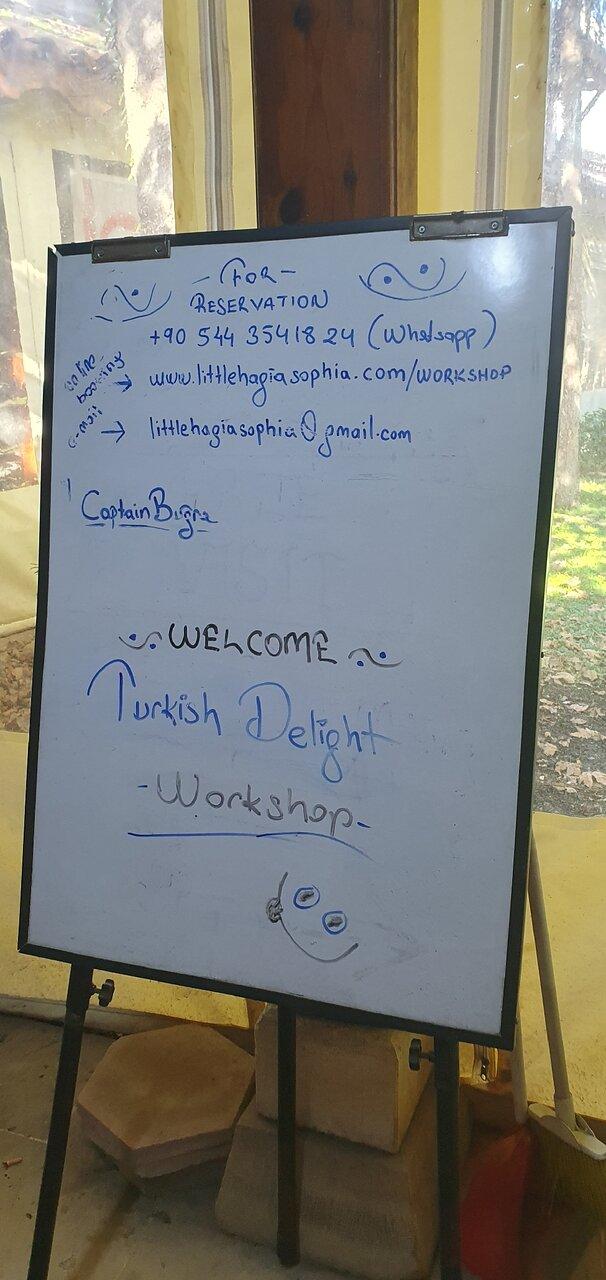 - FOR -
RESERVATION
+90 544 3541824 (Whatsapp)
online booking → www.littlehagiasophia.com/WORKSHOP
e-mail → littlehagiasophia@gmail.com
Captain Buğra
WELCOME
Turkish Delight
-Workshop-